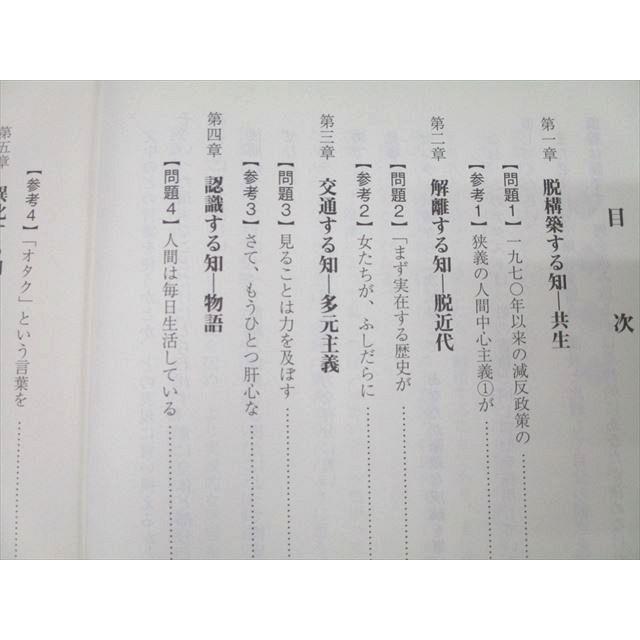 目次
第一章　脱構築する知―共生
【問題1】一九七〇年以来の減反政策の……………
【参考1】狭義の人間中心主義①が……………
第二章　解離する知―脱近代
【問題2】「まず実在する歴史が……………
【参考2】女たちが、ふしだらに……………
第三章　交通する知―多元主義
【問題3】見ることは力を及ぼす……………
【参考3】さて、もうひとつ肝心な……………
第四章　認識する知―物語
【問題4】人間は毎日生活している……………
【参考4】「オタク」という言葉を……………
第五章